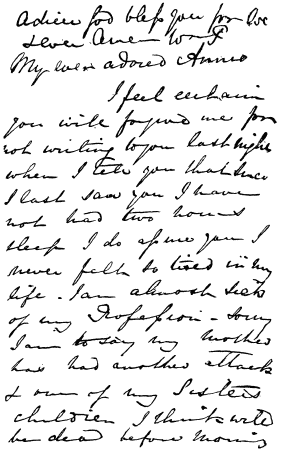 adieu God bless you for I've
never
My ever adored Annie
I feel certain
you will forgive me for
not writing to you last night
when I tell you that since
I last saw you I have
not had two hours
sleep I do assure you I
never felt so tired in my
life - I am almost sick
of my Profession - sorry
I am to say my mother
has had another attack
& one of my Sisters
children I think will
be dead before Morning